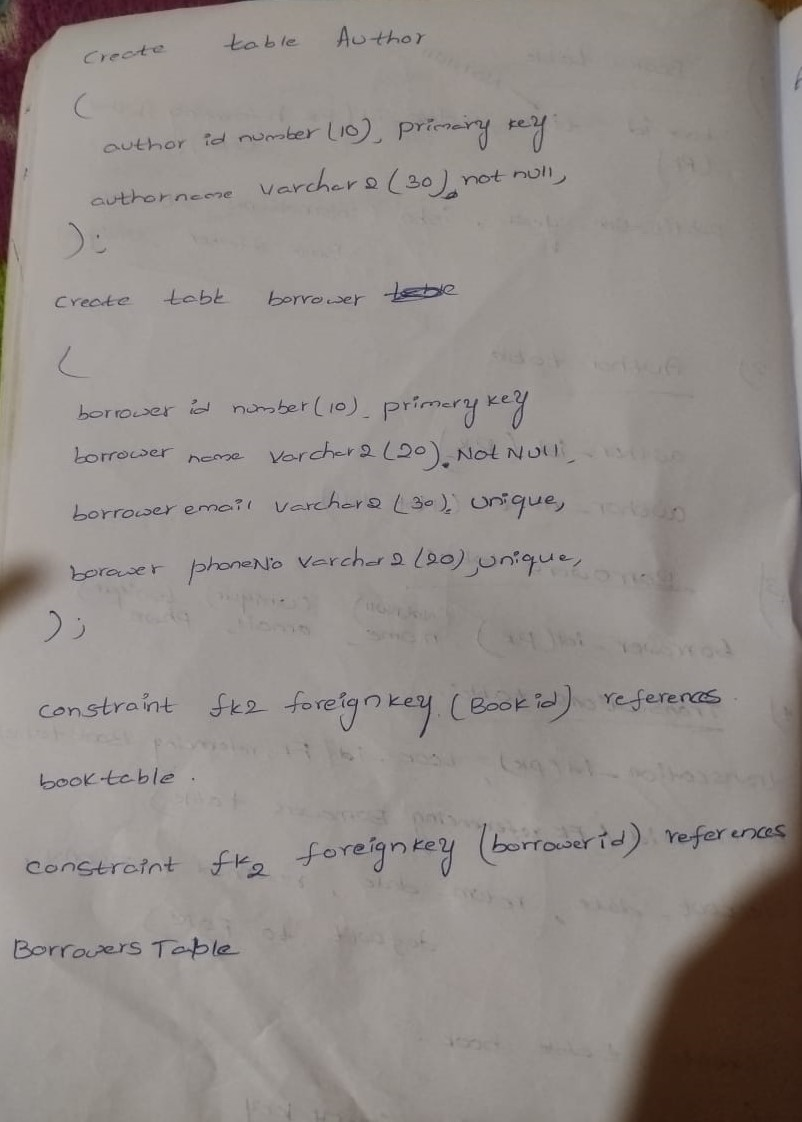 Create table Author
(
author id number (10), primary key
authorname varchar2 (30), not null,
);
Create table borrower
(
borrower id number (10), primary key
borrower name varchar2 (20), Not NUll,
borrower email varchar2 (30), unique,
borower phoneNo varchar2 (20), unique,
);
constraint fk2 foreign key (Book id) references
book table.
constraint fk2 foreign key (borrower id) references
Borrowers Table